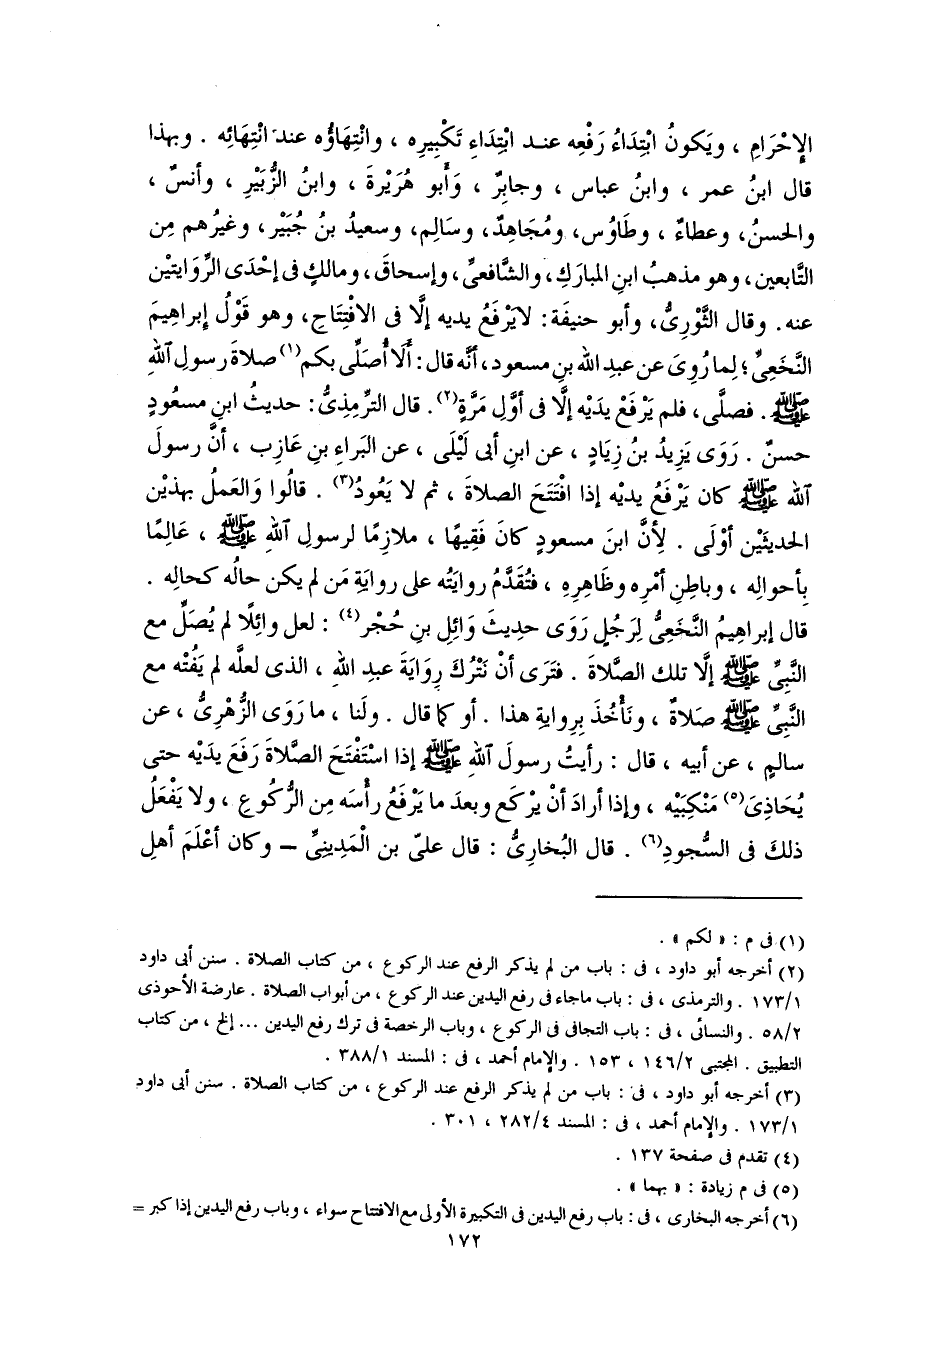 الإِحْرَامِ ، ويَكونُ ابْتِدَاءُ رَفْعِه عنـد ابْتِدَاءِ تَكْبِيرِه ، وانْتِهَاؤُه عندَ انْتِهَائِه . وبهذا
قال ابنُ عمر ، وابنُ عباس ، وجابِرٌ ، وَأبو هُرَيْرةَ ، وابنُ الزُّبَيْرِ ، وأنسٌ ،
والحسنُ، وعطاءٌ ، وطَاوُس، ومُجَاهِدٌ، وسَالِم، وسعيدُ بنُ جُبَيْر، وغيرُهم مِن
التَّابعين، وهو مذهبُ ابنِ المباركِ، والشَّافعيِّ، وإسحاقَ، ومالكٍ فى إحْدَى الرِّوَايتيْن
عنه. وقال الثَّوْرِىُّ، وأبو حنيفَة: لايَرْفَعُ يديه إلَّا فى الافْتِتَاحِ، وهو قَوْلُ إبراهيمَ
النَّخَعِيِّ؛ لِما رُوِىَ عن عبدِ الله بنِ مسعود، أنَّه قال: أَلَا أُصَلِّى بكم(١) صلاةَ رسولِ اللهِ
ﷺ . فصلَّى، فلم يَرْفَعْ يدَيْه إلَّا فى أوَّلِ مَرَّةٍ(٢). قال التِّرمِذىُّ: حديثُ ابنِ مسعُودٍ
حسنٌ . رَوَى يَزِيدُ بنُ زِيَادٍ ، عن ابنِ أبى لَيْلَى ، عن البَراءِ بنِ عَازِب ، أنَّ رسولَ
اللهِ ﷺ كان يَرْفَعُ يديْه إذا افْتَتَحَ الصلاةَ ، ثم لا يَعُودُ(٣) . قالُوا وَالعَملُ بهذيْن
الحديثَيْن أوْلَى . لِأنَّ ابنَ مسعودٍ كانَ فَقِيهًا ، ملازِمًا لرسولِ اللهِ ﷺ ، عَالِمًا
بِأحوالِه ، وباطِنِ أمْرِه وظَاهِرِه ، فتُقَدَّمُ روايَتُه على روايةِ مَن لم يكن حالُه كحالِه .
قال إبراهِيمُ النَّخَعِىُّ لِرَجُلٍ رَوَى حديثَ وَائِلِ بنِ حُجْر(٤) : لعل وائِلًا لم يُصَلِّ مع
النَّبِىِّ ﷺ إلَّا تلك الصَّلاةَ . فتَرَى أنْ نَتْرُكَ رِوَايَةَ عبدِ الله ، الذى لعلَّه لم يَفُتْه مع
النَّبِىِّ ﷺ صَلاةٌ ، ونَأْخُذَ بِروايةِ هذا . أو كما قال . ولَنا ، ما رَوَى الزُّهْرِىُّ ، عن
سالمٍ ، عن أبيه ، قال : رأيتُ رسولَ اللهِ ﷺ إذا اسْتَفْتَحَ الصَّلاةَ رَفَعَ يدَيْه حتى
يُحَاذِىَ(٥) مَنْكِبَيْه ، وإذا أرادَ أنْ يرْكع وبعدَ ما يَرْفَعُ رأْسَه مِن الرُّكوعِ ، ولا يَفْعَلُ
ذلكَ فى السُّجودِ(٦) . قال البُخارِىُّ : قال علىّ بن الْمَدِينِىِّ – وكان أعْلَمَ أهلِ
(١) فى م : « لكم » .
(٢) أخرجه أبو داود ، فى : باب من لم يذكر الرفع عند الركوع ، من كتاب الصلاة . سنن أبى داود
١٧٣/١ . والترمذى ، فى : باب ماجاء فى رفع اليدين عند الركوع ، من أبواب الصلاة . عارضة الأحوذى
٥٨/٢ . والنسائى ، فى : باب التجافى فى الركوع ، وباب الرخصة فى ترك رفع اليدين ... إلخ ، من كتاب
التطبيق . المجتبى ١٤٦/٢ ، ١٥٣ . والإمام أحمد ، فى : المسند ٣٨٨/١ .
(٣) أخرجه أبو داود ، فى : باب من لم يذكر الرفع عند الركوع ، من كتاب الصلاة . سنن أبى داود
١٧٣/١ . والإمام أحمد ، فى : المسند ٢٨٢/٤ ، ٣٠١ .
(٤) تقدم فى صفحة ١٣٧ .
(٥) فى م زيادة : « بهما » .
(٦) أخرجه البخارى ، فى : باب رفع اليدين فى التكبيرة الأولى مع الافتتاح سواء ، وباب رفع اليدين إذا كبر =
١٧٢